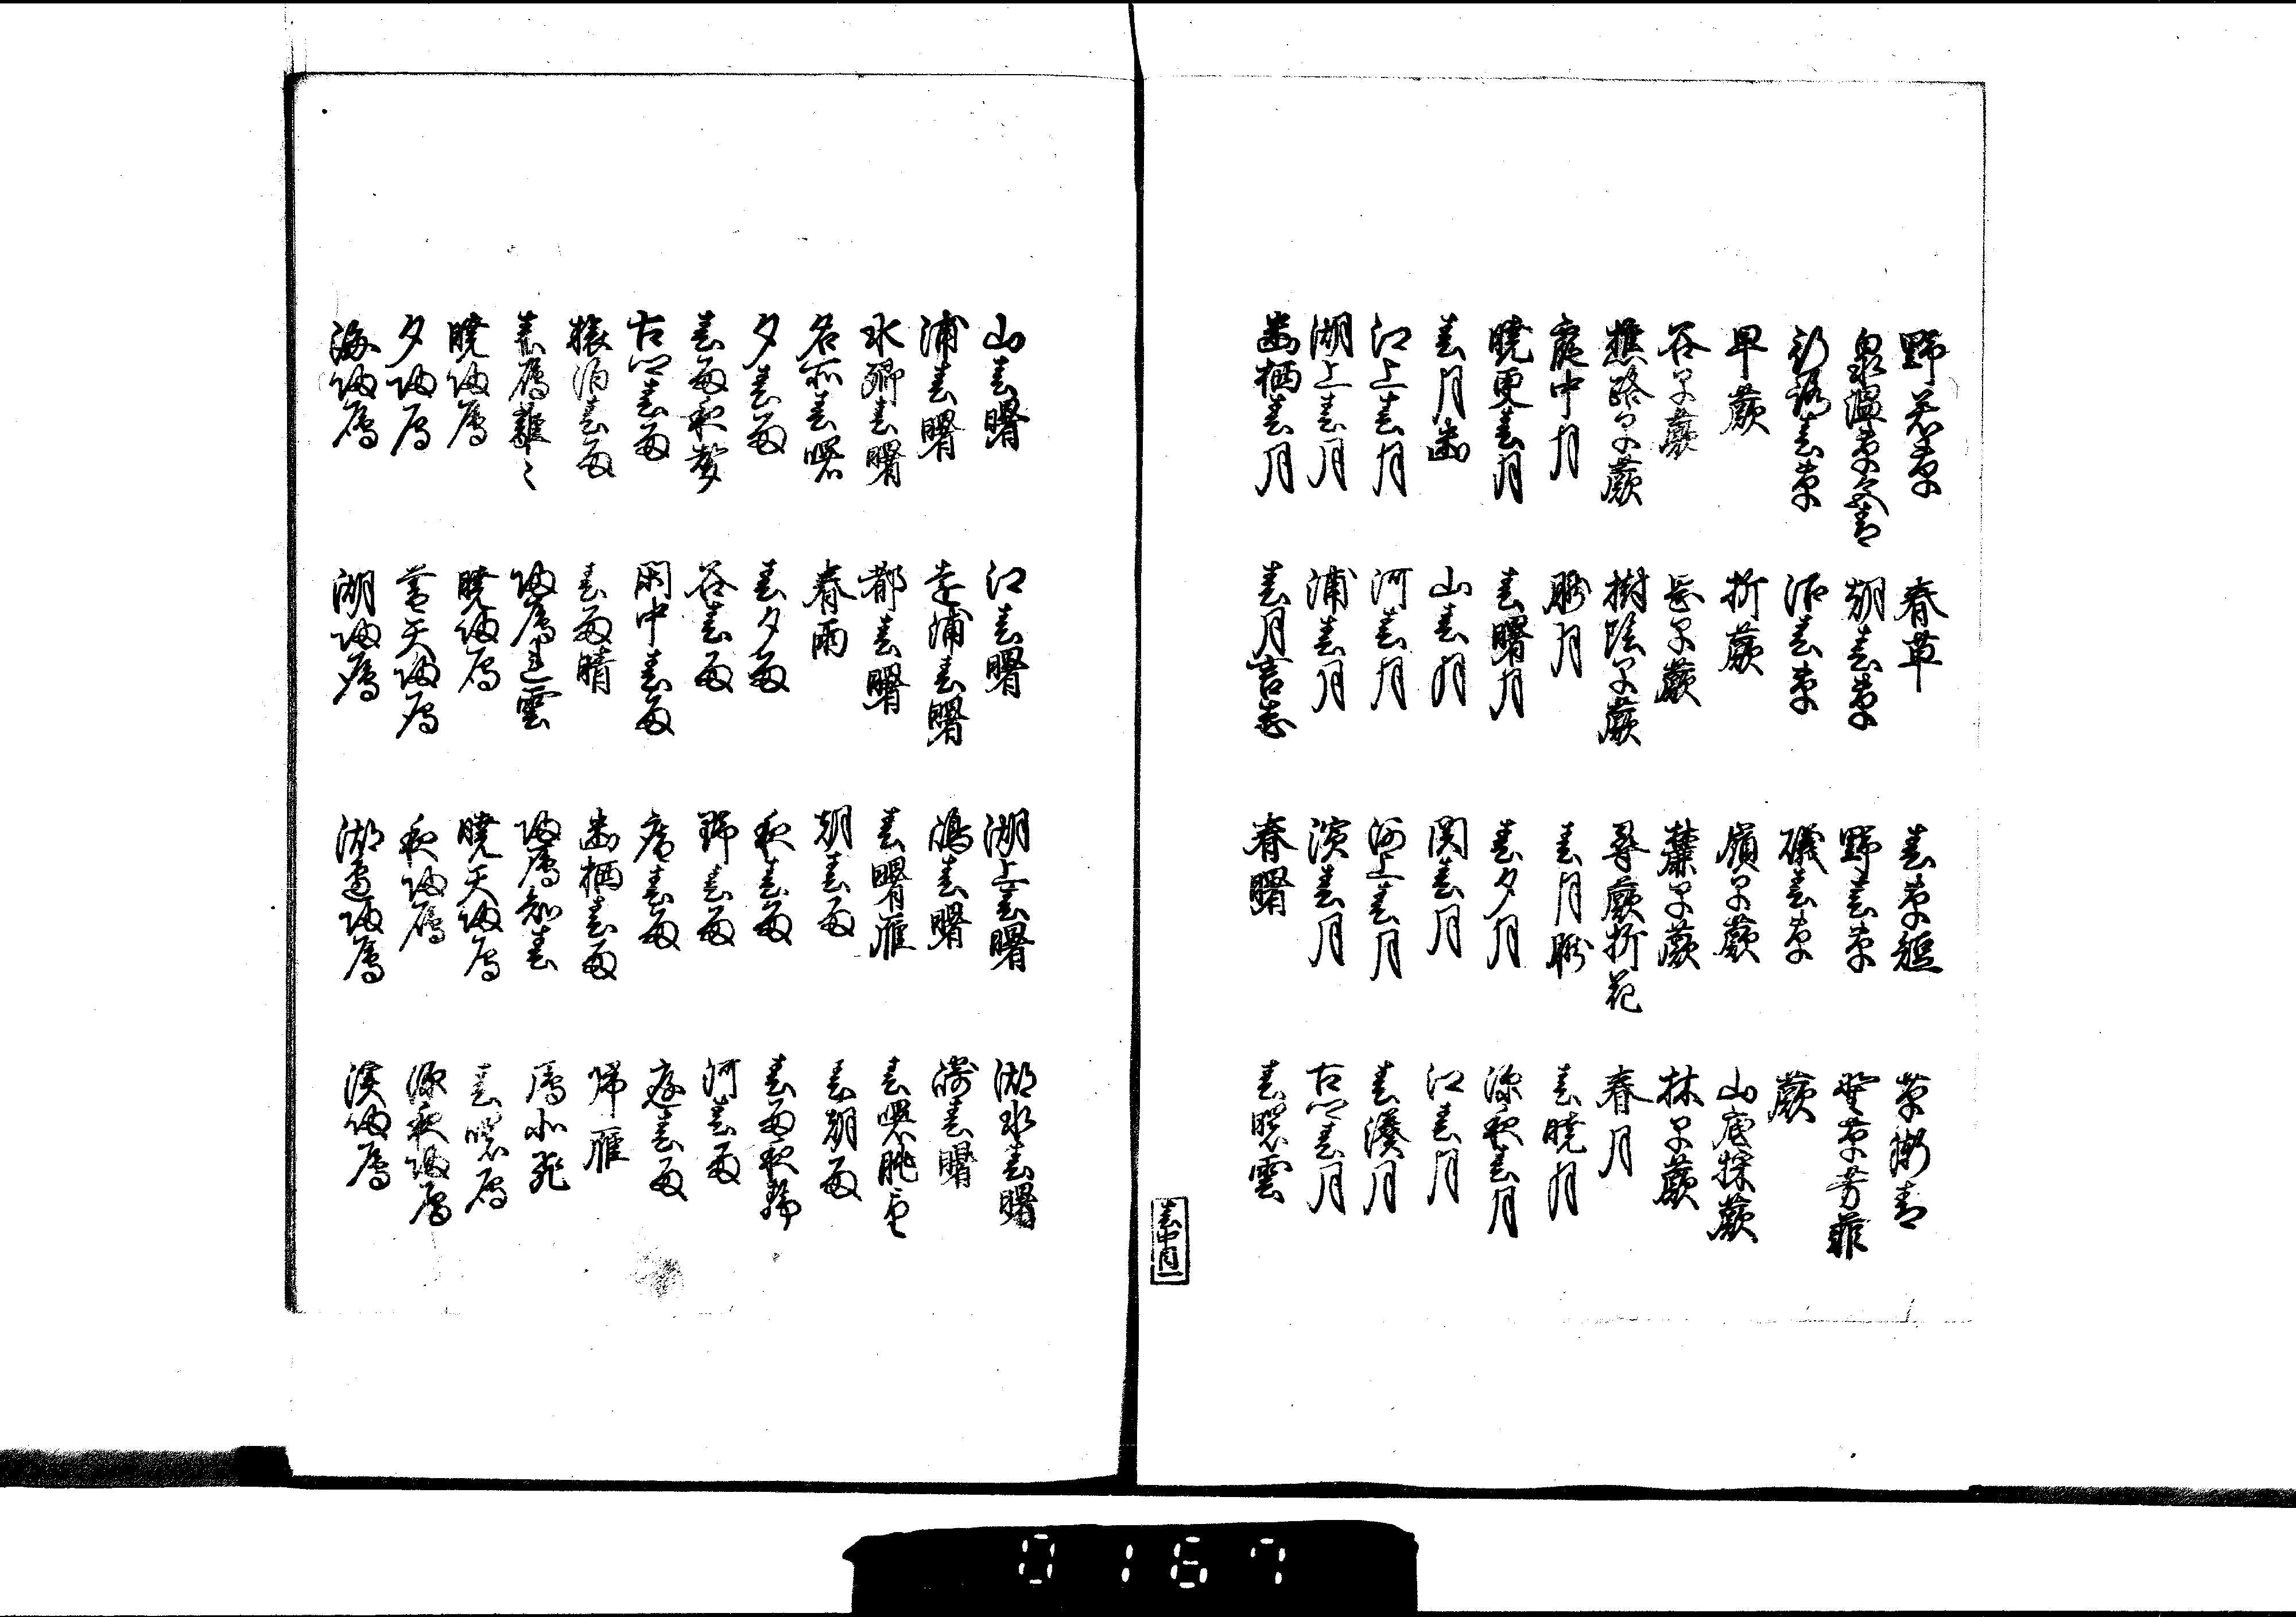 野若草 春草 春草短 草漸青
泉温草又青 朝春草 野春草 野草芳菲
行路春草 沼春草 磯春草 蕨
早蕨 折蕨 嶺早蕨 山底採蕨
谷早蕨 岳早蕨 麓早蕨 林早蕨
樵路早蕨 樹陰早蕨 尋蕨折花 春月
庭中月 朧月 春月朧 春暁月
暁更春月 春曙月 春夕月 深夜春月
春月幽 山春月 関春月 江春月
江上春月 河春月 河上春月 春湊月
湖上春月 浦春月 浜春月 古郷春月
幽栖春月 春月言志 春曙 春曙雲
山春曙 江春曙 湖上春曙 湖水春曙
浦春曙 遠浦春曙 嶋春曙 春曙
水郷春曙 都春曙 春曙雁 春曙眺望
名所春曙 春雨 朝春雨 春朝雨
夕春雨 春夕雨 夜春雨 春雨夜静
春雨夜夢 谷春雨 野春雨 河春雨
古郷春雨 閑中春雨 庵春雨 庭春雨
旅泊春雨 春雨晴 幽栖春雨 帰雁
春雁離々 帰雁連雲 帰雁知春 雁北飛
暁帰雁 暁帰雁 暁天帰雁 春曙雁
夕帰雁 暮天帰雁 夜帰雁 深夜帰雁
海帰雁 湖帰雁 湖辺帰雁 帰雁
0167